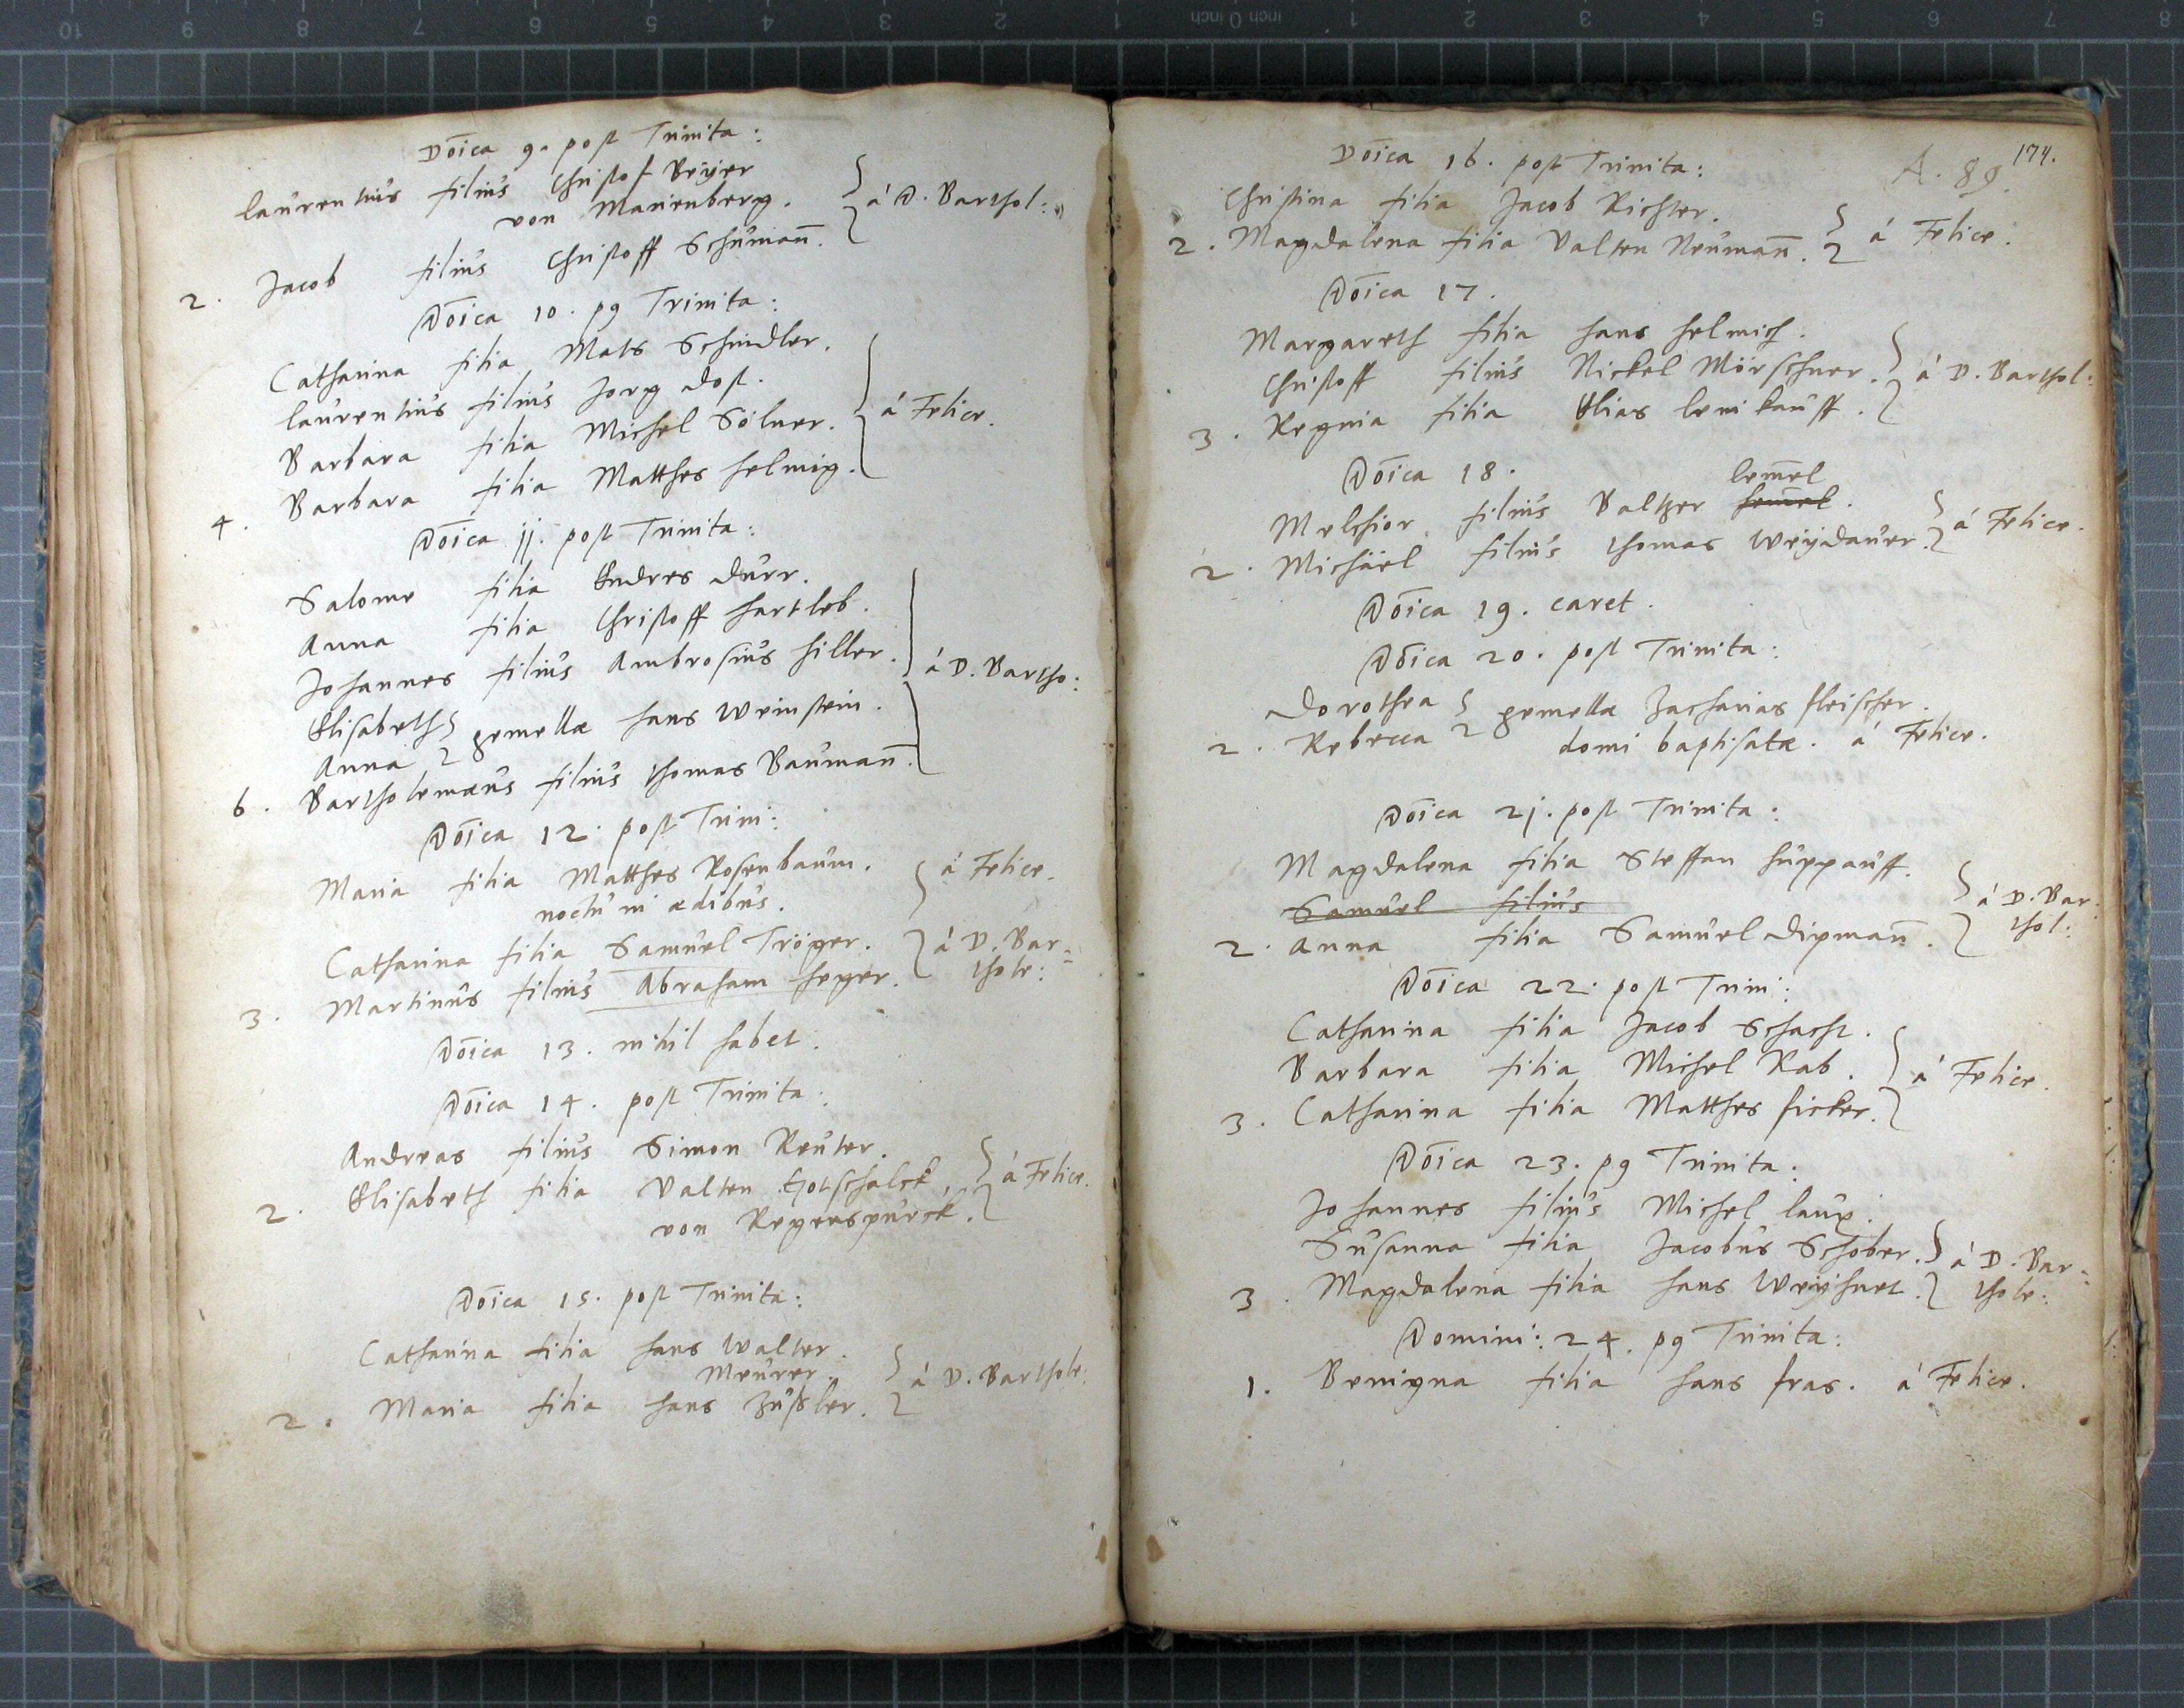 Dōica 9. post Trinita:
Laurentius filius Christof Beÿer
von Marienberg.
} á D. Barthol:
2. Jacob filius Christoff Schumañ.
Dōica 10. pg Trinita:
Catharina filia Mats Schindler.
Laurentius filius Jorg Dost.
Barbara filia Michel Sölner.
} á Felice.
4. Barbara filia Matthes Helmig.
Dōica jj. post Trinita:
Salome filia Endres Dürr.
Anna filia Christoff Hartleb.
Johannes filius Ambrosius Hiller.
} á D. Bartho:
Elisabeth
Anna
} gemellæ Hans Weinstein.
6. Bartholemæus filius Thomas Baumañ.
Dōica 12. post Trini:
Maria filia Matthes Rosenbaum.
noctu in ædibus.
} á Felice.
Catharina filia Samuel Tröger.
3. Martinus filius Abraham Heger.
} á D. Bar=
thole:
Dōica 13. nihil habet.
Dōica 14. post Trinita:
Andreas filius Simon Reuter.
2. Elisabeth filia Valten Gotschalck,
von Regenspurck.
} á Felice.
Dōica 15. post Trinita:
Catharina filia Hans Walter.
Meurer
2. Maria filia Hans Züßler.
} á D. Barthole:
174.
A. 89.
Dōica 16. post Trinita:
Christina filia Jacob Richter.
2. Magdalena filia Valten Neumañ.
} á Felice.
Dōica 17.
Margareth filia Hans Helmich.
Christoff filius Nickel Mörschner.
3. Regina filia Elias Leinkauff.
} á D. Barthol:
Dōica 18.
Lem̄el
Melchior filius Baltzer Hem̄el.
2. Michäel filius Thomas Weÿdauer.
} á Felice.
Dōica 19. caret.
Dōica 20. post Trinita:
Dorothea
2. Rebecca
} gemellæ Zacharias Fleischer.
domi baptisatæ. á Felice.
Dōica 2j. post Trinita:
Magdalena filia Steffan Huppauff.
Samuel filius
2. Anna filia Samuel Dipmañ.
} á D. Bar=
thol:
Dōica 22. post Trini:
Catharina filia Jacob Schacht.
Barbara filia Michel Rab.
3. Catharina filia Matthes Ficker.
} á Felice.
Dōica 23. pg Trinita:
Johannes filius Michel Laux.
Susanna filia Jacobus Schober.
3. Magdalena filia Hans Weÿhnet.
} á D. Bar=
thole:
Domini: 24. pg Trinita:
1. Benigna filia Hans Fras. á Felice.